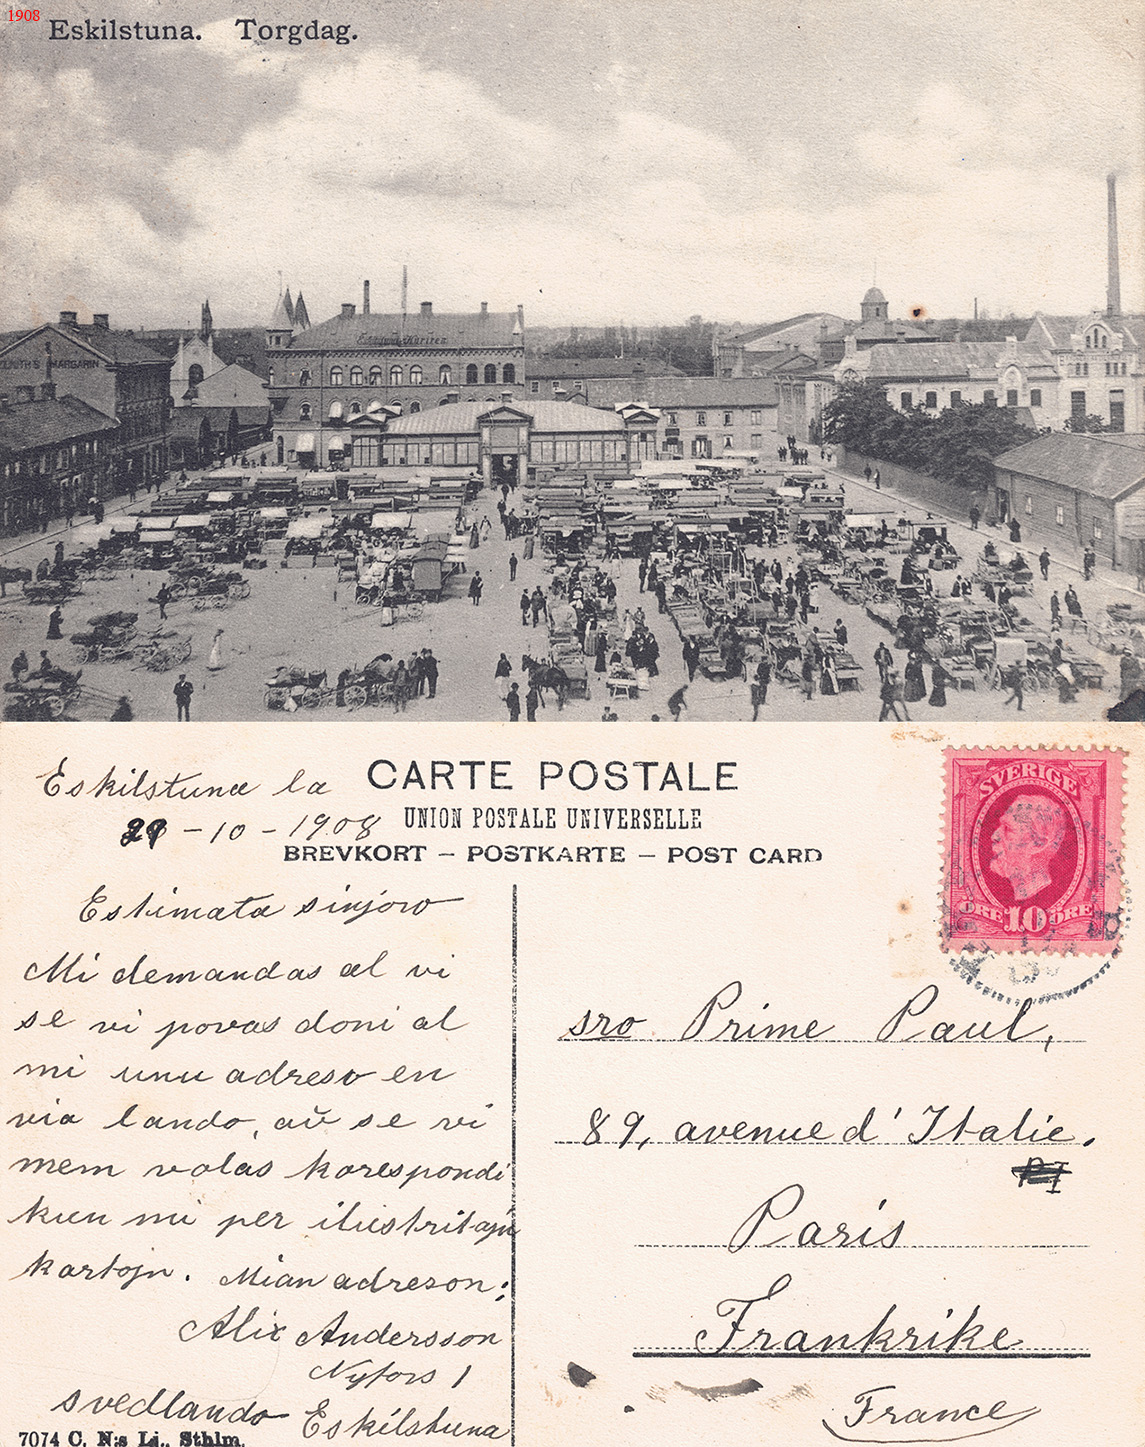 1908
Eskilstuna. Torgdag.
MARGARIN
5
Eskilstuna la
CARTE POSTALE
29-10-1908
UNION POSTALE UNIVERSELLE
BREVKORT — POSTKARTE — POST CARD
SVERIGE
ÖRE 10 ÖRE
Estimata sinjoro
Mi demandas al vi
se vi povas doni al
mi unu adreso en
via lando, aŭ se vi
mem volas korespondi
kun mi per ilustritajn
kartojn. Mian adreson:
Alix Andersson
Nyfors 1
svedlando Eskilstuna
7074 C. N:s Lj., Sthlm.
sro Prime Paul,
89, avenue d'Italie.
Paris
Frankrike
France